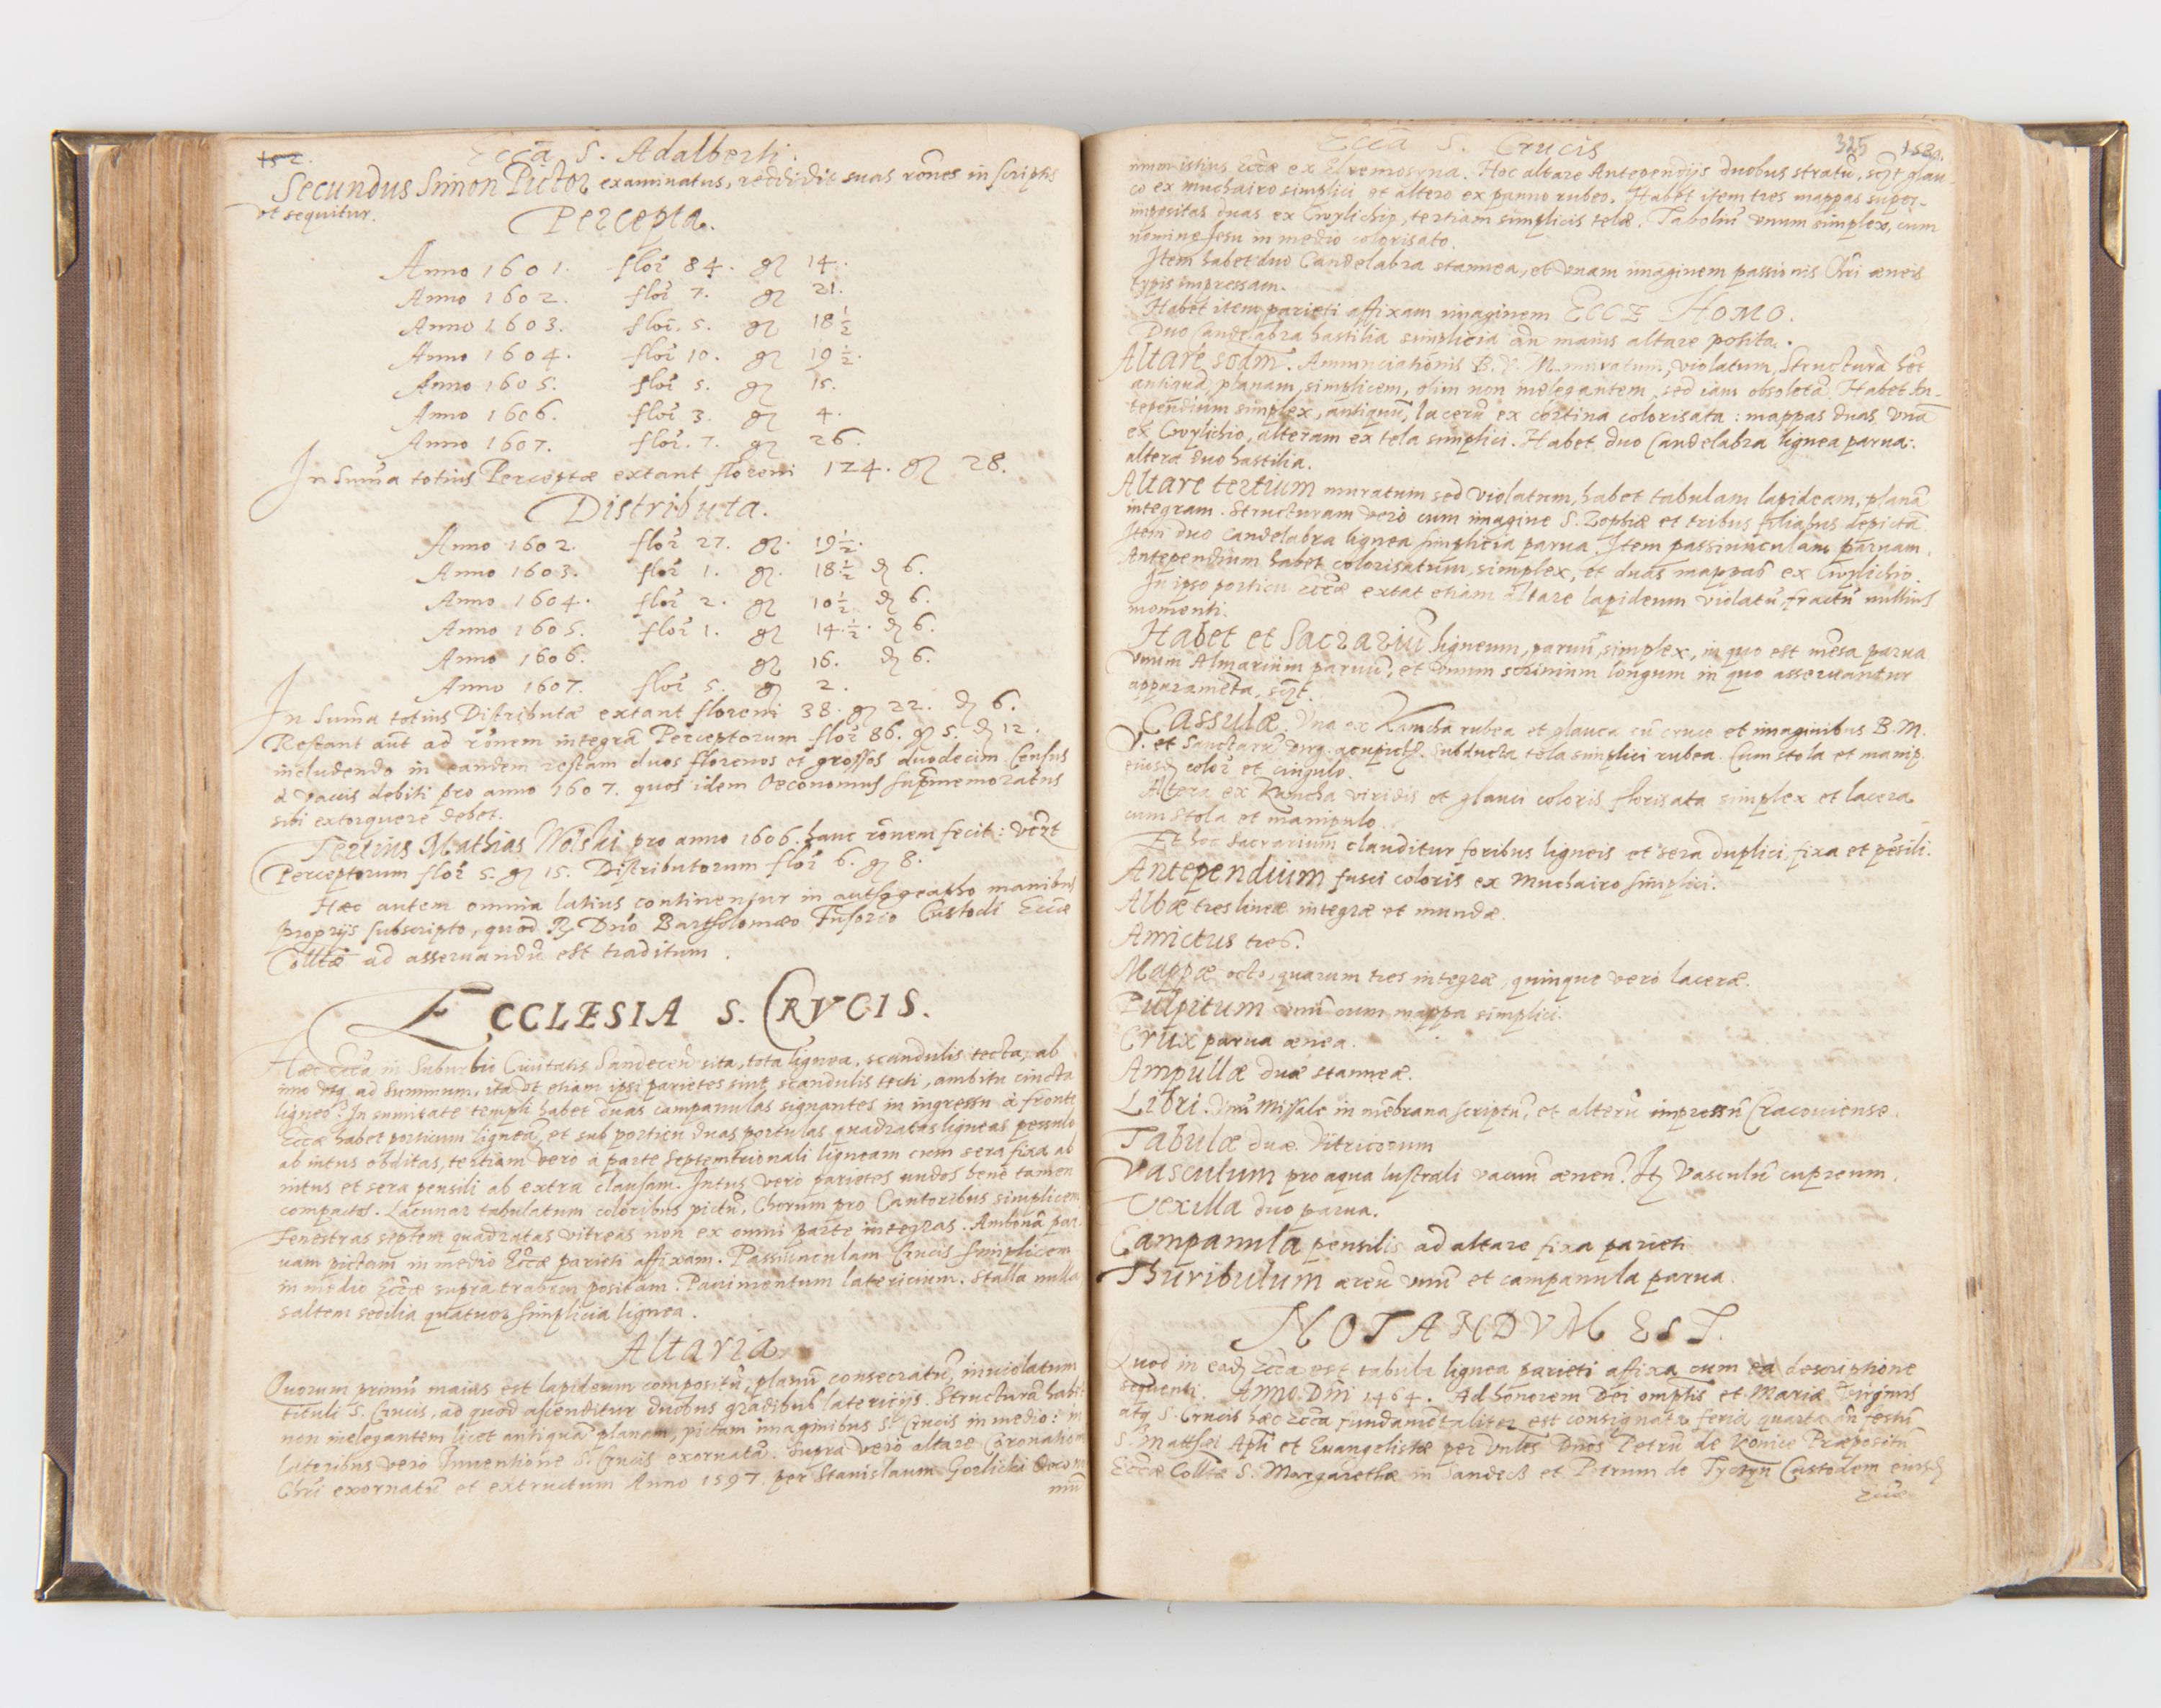 152.
Eccã S. Adalberti.
Secundus Simon Pictor examinatus, reddidit suas rões in scriptis
vt sequitur.
Percepta.
Anno 1601. flor 84. gr 14.
Anno 1602. flor 7. gr 21.
Anno 1603. flor. 5. gr 18 ½
Anno 1604. flor 10. gr 19 ½.
Anno 1605. flor 5. gr 15.
Anno 1606. flor 3. gr 4.
Anno 1607. flor. 7. gr 26.
In Suma totius Perceptæ extant floreni 124. gr 28.
Distributa.
Anno 1602. flor 27. gr. 19 ½.
Anno 1603. flor 1. gr. 18 ½ d 6.
Anno 1604. flor 2. gr 10 ½ d 6.
Anno 1605. flor 1. gr 14. ½. d 6.
Anno 1606. gr 16. d 6.
Anno 1607. flor 5. gr 2.
In Suma totius Distributæ extant floreni 38. gr 22. d 6.
Restant aut ad rõnem integrã Perceptorum flor 86. gr 5. d 12.
includendo in eandem restam duos florenos et grossos duodecim Census
à vaccis debiti pro anno 1607. quos idem Oeconomus supmemoratus
sibi extorquere debet.
Tertius Mathias Wolski pro anno 1606. hanc rõnem fecit: vez̃t
Perceptorum flor 5. gr 15. Distributorum flor 6. gr 8.
Hæc autem omnia latius continentur in authographo manibus
proprijs subscripto, quod R. Dno Bartholomæo Fusorio Custodi Eccæ
Colltæ ad asseruandũ est traditum.
ECCLESIA S. CRVCIS.
Hæc Ecca in Suburbio Ciuitatis Sandecen sita, tota lignea, scandulis tecta, ab
imo vsq ad summum, ita vt etiam ipsi parietes sint scandulis tecti, ambitu cincta
ligneo. In sumitate templi habet duas campanulas signantes in ingressu à fronte
Eccæ habet porticum ligneã, et sub porticu duas portulas quadratas ligneas pessulo
ab intus obditas, tertiam vero à parte Septemtrionali ligneam cum sera fixa ab
intus et sera pensili ab extra clausam. Intus vero parietes nudos bene tamen
compactos. Lacunar tabulatum coloribus pictũ, Chorum pro Cantoribus simplicem
Fenestras septem quadratas vitreas non ex omni parte integras. Ambonã par-
uam pictam in medio Eccæ parieti affixam. Passiunculam Crucis simplicem
in medio Eccæ supra trabem positam. Pauimentum latericium. Stalla nulla
saltem sedilia quatuor simplicia lignea.
Altaria.
Quorum primũ maius est lapideum compositũ, planũ consecratũ, inuiolatum
tituli S. Crucis, ad quod ascenditur duobus gradibus latericijs. Structurã habet
non inelegantem licet antiquã planam, pictam imaginibus S. Crucis in medio: in
lateribus vero Inuentione S. Crucis exornatã. Supra vero altare Coronation
Chri exornatũ et extructum Anno 1597. per Stanislaum Gorlicki Oecon
mũ
Ecca S. Crucis
325
mum istius Eccæ ex Eleemosyna. Hoc altare Antependijs duobus stratũ, sczt glau-
co ex muchairo simplici et altero ex panno rubeo. Habet item tres mappas super-
impositas duas ex Cwylichio, tertiam simplicis telæ. Tabolũ vnum simplex, cum
nomine Jesu in medio colorisato.
Item habet duo Candelabra stannea, et vnam imaginem passionis Chri æneis
typis impressam.
Habet item parieti affixam imaginem ECCE HOMO.
Duo Candelabra hastilia simplicia an maius altare posita.
Altare scdm. Annunciationis B. V. M. muratum, violatum, Structurã het
antiquã, planam, simplicem, olim non inelegantem, sed iam obsoletã. Habet An-
tependium simplex, antiquũ, lacerũ ex cortina colorisata: mappas duas, vnã
ex Cwylichio, alteram ex tela simplici. Habet duo Candelabra lignea parua:
altera duo hastilia.
Altare tertium muratum sed violatum, habet tabulam lapideam, planã
integram. Structuram vero cum imagine S. Zophiæ et tribus filiabus depictã
Item duo candelabra lignea simplicia parua. Item passiunculam paruam.
Antependium habet colorisatum, simplex, et duas mappas ex Cwylichio.
In ipso porticu Eccæ extat etiam altare lapideum violatũ, fractũ nullius
momenti.
Habet et Sacrariũ ligneum, paruũ, simplex, in quo est mẽsa parua
vnum Almarium paruũ, et vnum scrinium longum in quo asseruantur
apparamẽta, sczt.
Cassulæ. Vna ex Kamcha rubea et glauca cũ cruce et imaginibus B. M.
V. et Sanctarũ virg. acupicts. subducta tela simplici rubea. Cum stola et manip.
eiusd color et cingulo.
Altera ex Kamcha viridis et glauci coloris florisata simplex et lacera
cum stola et manipulo.
Et hoc Sacrarium clauditur foribus ligneis et sera duplici fixa et pẽsili.
Antependium fusci coloris ex Muchairo simplici.
Albæ tres lineæ integræ et mundæ.
Amictus tres.
Mappæ octo, quarum tres integræ, quinque vero laceræ.
Pulpitum vnũ cum mappa simplici.
Crux parua ænea.
Ampullæ duæ stanneæ.
Libri. Vnũ Missale in mẽbrana scriptũ, et alterũ impressũ Cracouiense.
Tabulæ duæ
Vasculum pro aqua lustrali vacuũ æneũ. It Vasculũ cupreum.
Vexilla duo parua.
Campanula pensilis ad altare fixa parieti
Thuribulum æreũ vnũ et campanula parua.
NOTANDVM EST.
Quod in ead Ecca est tabula lignea parieti affixa cum ea descriptione
sequenti. Anno Dni 1464. Ad honorem Dei omptis et Mariæ Virginis
atq S. Crucis hæc Ecca fundamẽtaliter est consignata feria quarta an festũ
S. Matthæi Apli et Euangelistæ per Vnles Dnos Petrũ de Konice Præpositũ
Eccæ Colltæ S. Margarethæ in Sandecz et Petrum de Tyczyn Custodem eiusd
Eccæ